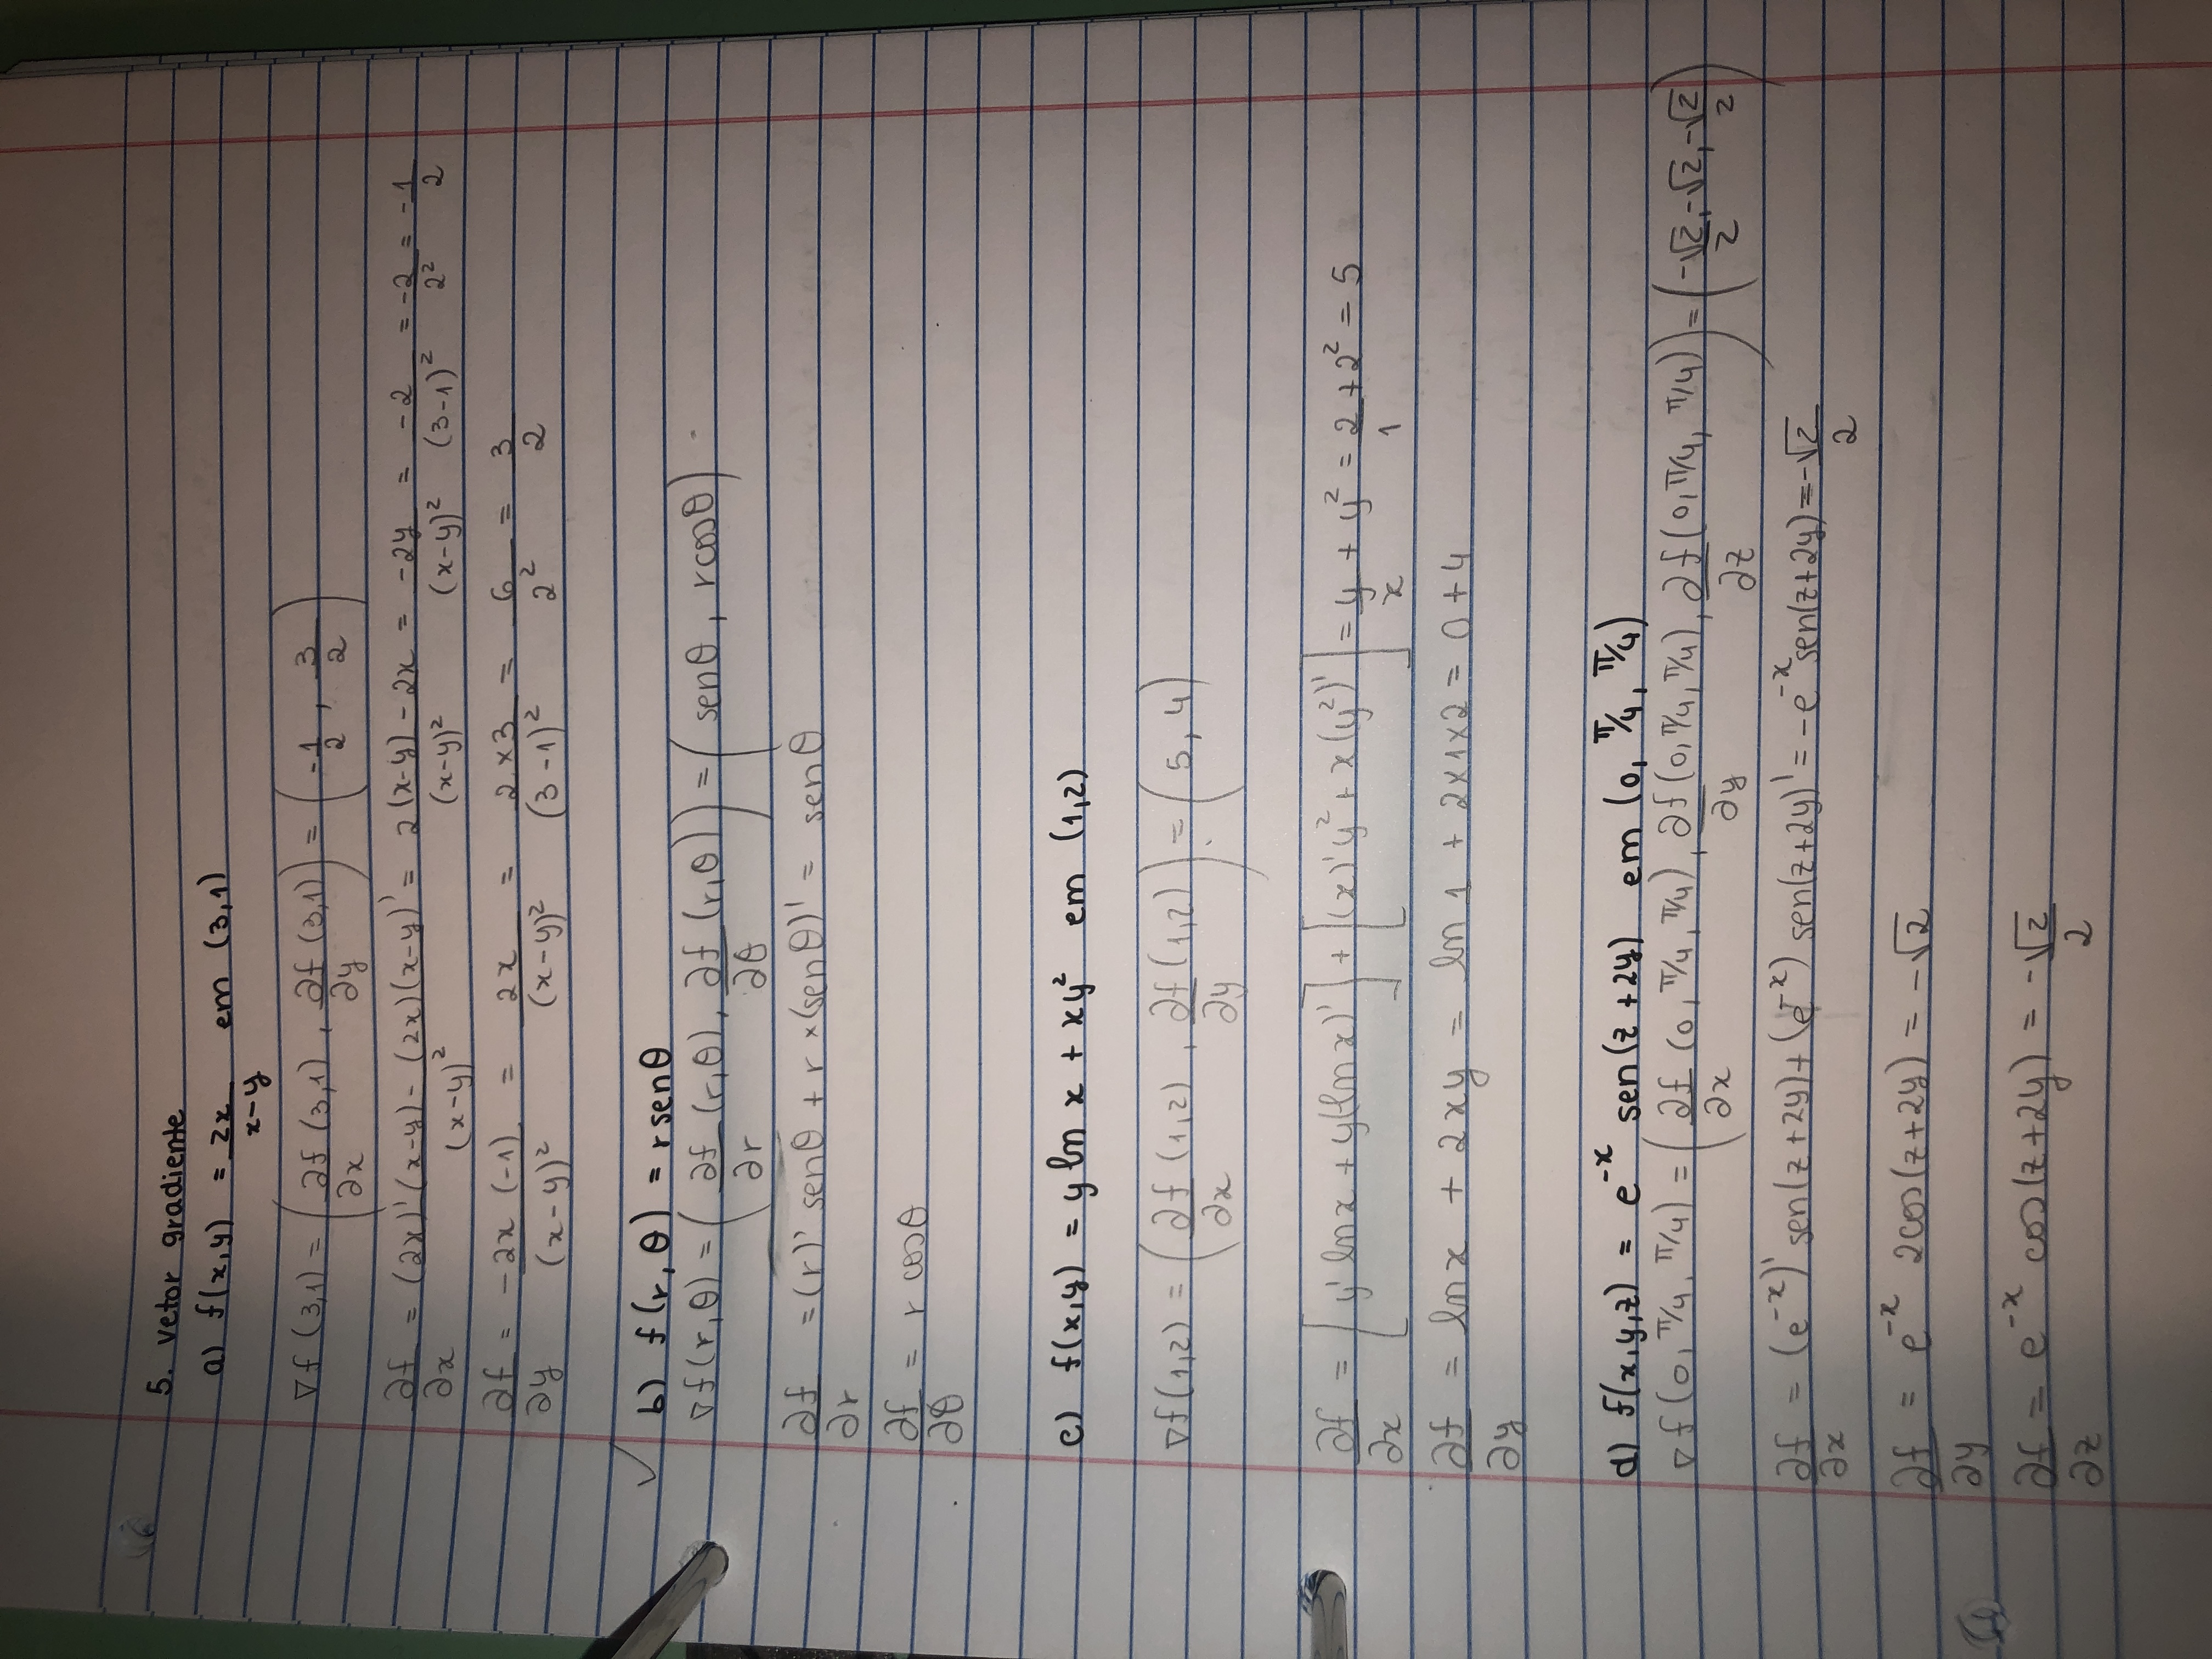 5. vetor gradiente
a) f(x,y) = 2x/(x-y) em (3,1)
∇f (3,1) = (∂f/∂x (3,1), ∂f/∂y (3,1)) = (-1/2, 3/2)
∂f/∂x = ((2x)'(x-y) - (2x)(x-y)')/(x-y)² = (2(x-y) - 2x)/(x-y)² = -2y/(x-y)² = -2/(3-1)² = -2/2² = -1/2
∂f/∂y = -2x (-1)/(x-y)² = 2x/(x-y)² = 2×3/(3-1)² = 6/2² = 3/2
✓ b) f(r, θ) = r sen θ
∇f(r,θ) = (∂f/∂r (r,θ), ∂f/∂θ (r,θ)) = (senθ, r cosθ)
∂f/∂r = (r)' senθ + r ×(senθ)' = senθ
∂f/∂θ = r cosθ
c) f(x,y) = y ln x + xy² em (1,2)
∇f(1,2) = (∂f/∂x (1,2), ∂f/∂y (1,2)) = (5, 4)
∂f/∂x = [y' ln x + y(ln x)'] + [(x)'y² + x(y²)'] = y/x + y² = 2/1 + 2² = 5
∂f/∂y = ln x + 2xy = ln 1 + 2×1×2 = 0 + 4
d) f(x,y,z) = e⁻ˣ sen(z + 2y) em (0, π/4, π/4)
∇f(0, π/4, π/4) = (∂f/∂x (0, π/4, π/4), ∂f/∂y (0, π/4, π/4), ∂f/∂z (0, π/4, π/4)) = (-√2/2, -√2, -√2/2)
∂f/∂x = (e⁻ˣ)' sen(z+2y) + (e⁻ˣ) sen(z+2y)' = -e⁻ˣ sen(z+2y) = -√2/2
∂f/∂y = e⁻ˣ 2cos(z+2y) = -√2
∂f/∂z = e⁻ˣ cos(z+2y) = -√2/2